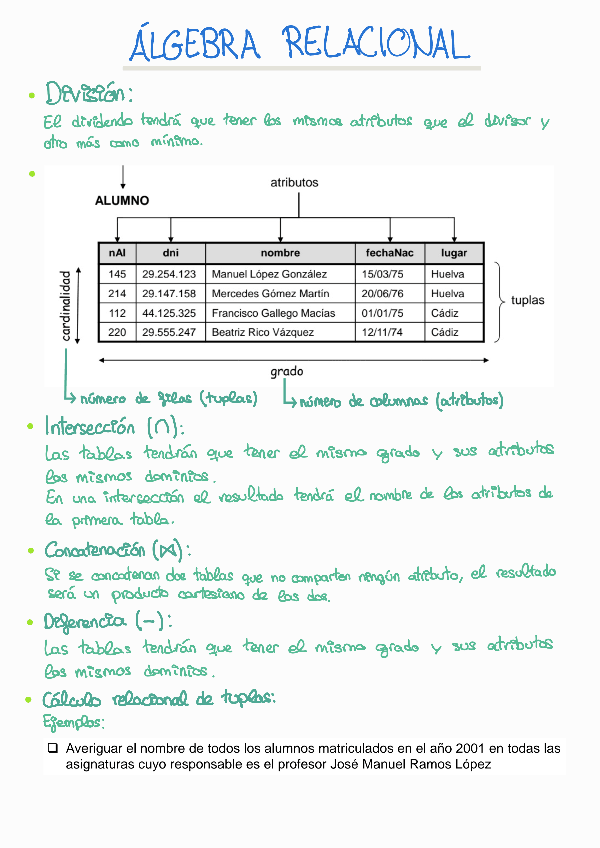 ÁLGEBRA RELACIONAL
• División:
El dividendo tendrá que tener los mismos atributos que el divisor y
otro más como mínimo.
ALUMNO
atributos
nAl dni nombre fechaNac lugar
145 29.254.123 Manuel López González 15/03/75 Huelva
214 29.147.158 Mercedes Gómez Martín 20/06/76 Huelva
112 44.125.325 Francisco Gallego Macías 01/01/75 Cádiz
220 29.555.247 Beatriz Rico Vázquez 12/11/74 Cádiz
cardinalidad
tuplas
grado
número de filas (tuplas)
número de columnas (atributos)
• Intersección (∩):
Las tablas tendrán que tener el mismo grado y sus atributos
los mismos dominios.
En una intersección el resultado tendrá el nombre de los atributos de
la primera tabla.
• Concatenación (⋈):
Si se concatenan dos tablas que no comparten ningún atributo, el resultado
será un producto cartesiano de las dos.
• Diferencia (−):
Las tablas tendrán que tener el mismo grado y sus atributos
los mismos dominios.
• Cálculo relacional de tuplas:
Ejemplos:
❑ Averiguar el nombre de todos los alumnos matriculados en el año 2001 en todas las
asignaturas cuyo responsable es el profesor José Manuel Ramos López